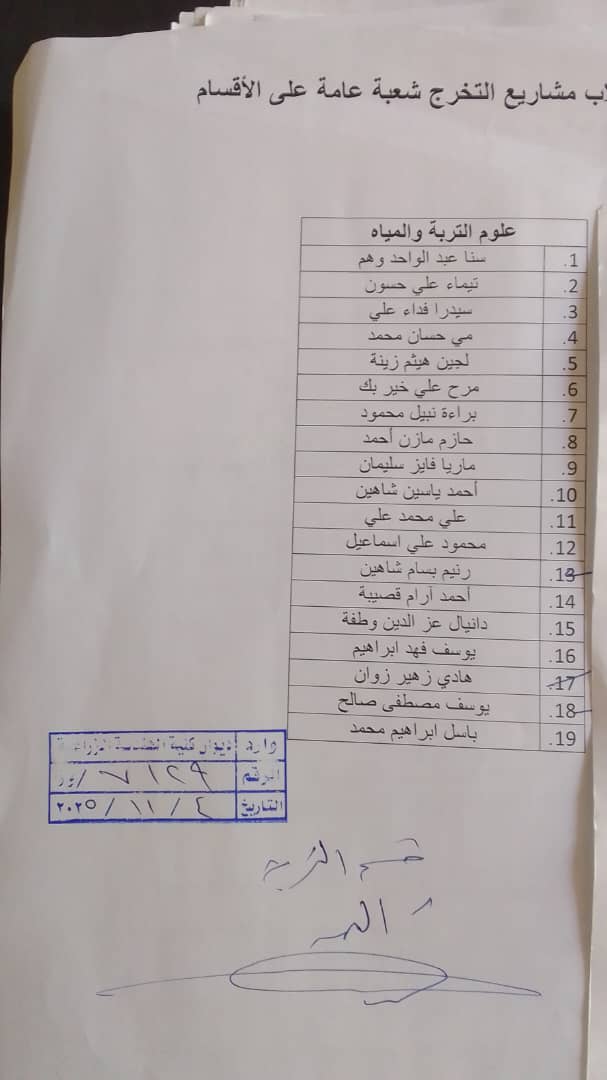 ب مشاريع التخرج شعبة عامة على الأقسام
علوم التربة والمياه
1. سنا عبد الواحد وهم
2. تيماء علي حسون
3. سيدرا فداء علي
4. مي حسان محمد
5. لجين هيثم زينة
6. مرح علي خير بك
7. براءة نبيل محمود
8. حازم مازن أحمد
9. ماريا فايز سليمان
10. أحمد ياسين شاهين
11. علي محمد علي
12. محمود علي اسماعيل
13. رنيم بسام شاهين
14. أحمد آرام قصيبة
15. دانيال عز الدين وطفة
16. يوسف فهد ابراهيم
17. هادي زهير زوان
18. يوسف مصطفى صالح
19. باسل ابراهيم محمد
وارد ديوان كلية الهندسة الزراعية
الرقم ٧١٢٩ /ور
التاريخ ٤ / ١١ / ٢٠٢٥
قسم التربة